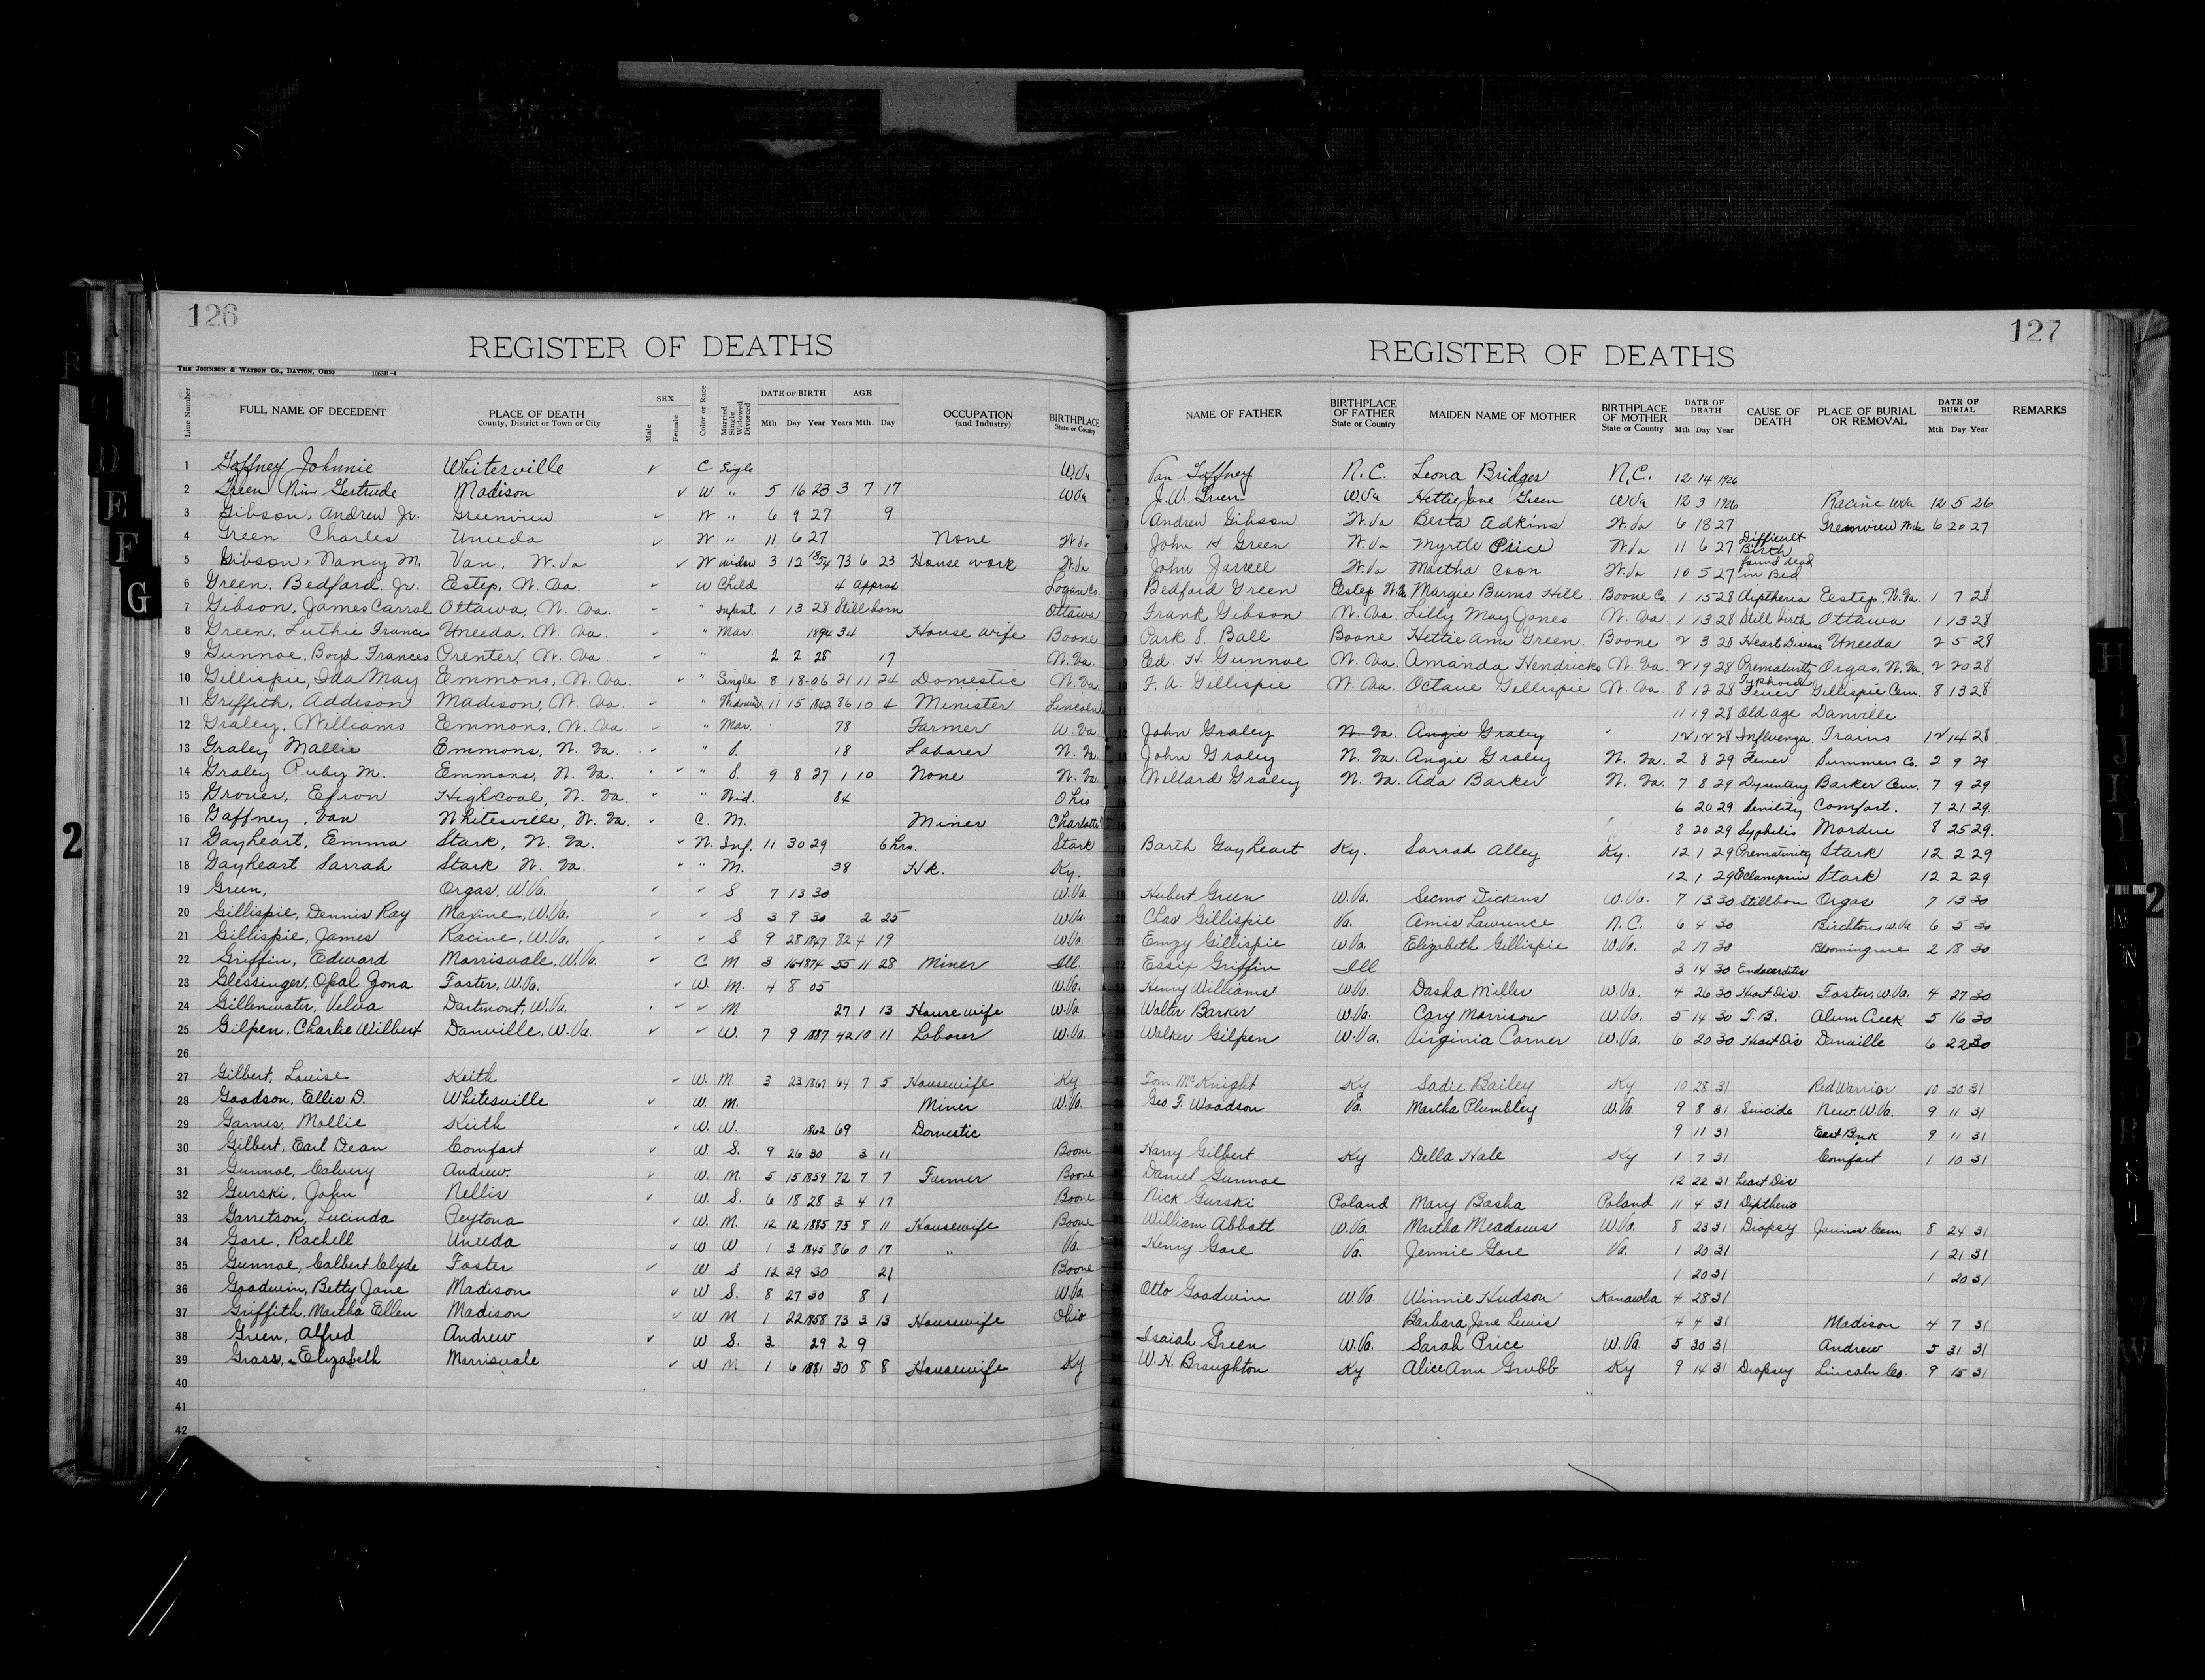 126
REGISTER OF DEATHS
THE JOHNSON & WATSON CO., DAYTON, OHIO 1063B-4
Line Number FULL NAME OF DECEDENT PLACE OF DEATH County, District or Town or City SEX Male Female Color or Race Married Single Widowed Divorced DATE OF BIRTH Mth Day Year AGE Years Mth. Day OCCUPATION (and Industry) BIRTHPLACE State or Country
1 Gaffney Johnnie Whitesville ✓ C Single W.Va
2 Green Gertrude Madison ✓ W " 5 16 23 3 7 17 W Va
3 Gibson, Andrew Jr. Greenview ✓ W " 6 9 27 9
4 Green Charles Uneeda ✓ W " 11 6 27 None W.Va
5 Gibson, Nancy M. Van, W.Va ✓ W widow 3 12 1854 73 6 23 House work W.Va
6 Green, Bedford, Jr. Estep, W. Va. ✓ W Child 4 Approx Logan Co.
7 Gibson, James Carral Ottawa, W. Va. ✓ " Infant 1 13 28 Stillborn Ottawa
8 Green, Luthie Francis Uneeda, W. Va. ✓ " Mar. 1894 34 House wife Boone
9 Gunnoe, Boyd Frances Prenter, W. Va. ✓ " 2 2 28 17 W.Va.
10 Gillispie, Ida May Emmons, W. Va. ✓ " Single 8 18-06 21 11 24 Domestic W.Va.
11 Griffith, Addison Madison, W. Va. ✓ " Widowed 11 15 1842 86 10 4 Minister Lincoln
12 Graley, Williams Emmons, W. Va. ✓ " Mar. 78 Farmer W.Va.
13 Graley Mallie Emmons, W. Va. ✓ " S. 18 Laborer W. Va
14 Graley Ruby M. Emmons, W. Va. ✓ " S. 9 8 27 1 10 None W.Va
15 Grover, Efron Highcoal, W. Va. ✓ " Wid. 84 Ohio
16 Gaffney, Van Whitesville, W. Va. ✓ C. M. Miner Charlotte
17 Gayheart, Emma Stark, W. Va. ✓ W. Inf. 11 30 29 6 hrs. Stark
18 Gayheart Sarrah Stark W. Va. ✓ " M. 38 H.K. Ky.
19 Green, Orgas, W.Va. ✓ ✓ S 7 13 30 W.Va.
20 Gillispie, Dennis Ray Maxine, W.Va. ✓ ✓ S 3 9 30 2 25 W.Va.
21 Gillispie, James Racine, W.Va. ✓ ✓ S 9 28 1847 82 4 19 W.Va.
22 Griffin, Edward Morrisvale, W.Va. ✓ C M 3 16 1874 55 11 28 Miner Ill.
23 Glessinger, Opal Zona Foster, W.Va. ✓ W. M. 4 8 05 W.Va.
24 Gillenwater, Velva Dartmont, W.Va. ✓ ✓ M 27 1 13 Housewife W.Va
25 Gilpen, Charlie Wilbert Danville, W.Va. ✓ ✓ W. 7 9 1887 42 10 11 Laborer W.Va.
26
27 Gilbert, Louise Keith ✓ W. M. 3 23 1867 64 7 5 Housewife Ky
28 Goodson, Ellis D. Whitesville ✓ W. M. Miner W.Va.
29 Garnes, Mollie Keith ✓ W. W. 1862 69 Domestic
30 Gilbert, Earl Dean Comfort ✓ W. S. 9 26 30 3 11 Boone
31 Gunnoe, Calvery Andrew ✓ W. M. 5 15 1859 72 7 7 Farmer Boone
32 Gurski, John Nellis ✓ W. S. 6 18 28 3 4 17 Boone
33 Garretson, Lucinda Peytona ✓ W. M. 12 12 1885 75 8 11 Housewife Boone
34 Gore, Rachell Uneeda ✓ W W 1 3 1845 86 0 17 " Va.
35 Gunnoe, Calbert Clyde Foster ✓ W S 12 29 30 21 Boone
36 Goodwin, Betty Jane Madison ✓ W S. 8 27 30 8 1 W.Va.
37 Griffith, Martha Ellen Madison ✓ W M 1 22 1858 73 3 13 Housewife Ohio
38 Green, Alfred Andrew ✓ W S. 3 29 2 9
39 Grass, Elizabeth Morrisvale ✓ W M 1 6 1881 50 8 8 Housewife Ky
40
41
42
127
REGISTER OF DEATHS
NAME OF FATHER BIRTHPLACE OF FATHER State or Country MAIDEN NAME OF MOTHER BIRTHPLACE OF MOTHER State or Country DATE OF DEATH Mth Day Year CAUSE OF DEATH PLACE OF BURIAL OR REMOVAL DATE OF BURIAL Mth Day Year REMARKS
1 Van Gaffney N.C. Leona Bridges N.C. 12 14 1926
2 J.W. Green W.Va Hettie Jane Green W.Va 12 3 1926 Racine W.Va 12 5 26
3 Andrew Gibson W.Va Berta Adkins W.Va 6 18 27 Greenview W.Va 6 20 27
4 John H Green W.Va Myrtle Price W.Va 11 6 27 Difficult Birth
5 John Jarrell W.Va Martha Coon W.Va 10 5 27 found dead in Bed
6 Bedford Green Estep W.Va Margie Burns Hill Boone Co. 1 15 28 Diptheria Eestep, W.Va. 1 7 28
7 Frank Gibson W. Va. Lilly May Jones W. Va. 1 13 28 Still birth Ottawa 1 13 28
8 Park S. Ball Boone Hettie Ann Green. Boone 2 3 28 Heart Disease Uneeda 2 5 28
9 Ed. H. Gunnoe W. Va. Amanda Hendricks W. Va. 2 19 28 Prematurity Orgas, W.Va. 2 20 28
10 F. A. Gillispie W. Va. Octave Gillispie W. Va. 8 12 28 Typhoid Fever Gillispie Cem. 8 13 28
11 11 19 28 Old age Danville
12 John Graley W. Va. Angie Graley " 12 12 28 Influenza Trains 12 14 28
13 John Graley W. Va. Angie Graley W. Va. 2 8 29 Fever Summers Co. 2 9 29
14 Willard Graley W. Va. Ada Barker W. Va. 7 8 29 Dysentery Barker Cem. 7 9 29
15 6 20 29 Senility Comfort. 7 21 29.
16 8 20 29 Syphilis Mardue 8 25 29.
17 Barth Gayheart Ky. Sarrah Alley Ky. 12 1 29 Prematurity Stark 12 2 29
18 12 1 29 Eclampsia Stark 12 2 29
19 Hubert Green W.Va. Secmo Dickens W.Va. 7 13 30 Stillborn Orgas 7 13 30
20 Chas Gillispie Va. Amis Lawrence N.C. 6 4 30 Birchton W.Va 6 5 30
21 Emzy Gillispie W.Va. Elizabeth Gillispie W.Va. 2 17 30 Bloomingrose 2 18 30
22 Essix Griffin Ill 3 14 30 Endocarditis
23 Henry Williams W.Va. Dasha Miller W.Va. 4 26 30 Heart Dis. Foster, W.Va. 4 27 30
24 Walter Barker W.Va. Cary Morrison W.Va. 5 14 30 T.B. Alum Creek 5 16 30
25 Walker Gilpen W.Va. Virginia Corner W.Va. 6 20 30 Heart Dis Danville 6 22 30
27 Tom McKnight Ky Sadie Bailey Ky 10 28 31 Red Warrior 10 30 31
28 Geo. F. Woodson Va. Martha Plumbley W.Va. 9 8 31 Suicide New. W.Va. 9 11 31
29 9 11 31 East Bnk 9 11 31
30 Harry Gilbert Ky Della Hale Ky 1 7 31 Comfort 1 10 31
31 Daniel Gunnoe 12 22 31 heart Dis
32 Nick Gurski Poland Mary Basha Poland 11 4 31 Diptheria
33 William Abbott W.Va. Martha Meadows W.Va. 8 23 31 Dropsy Cem. 8 24 31
34 Henry Gore Va. Jennie Gore Va. 1 20 31 1 21 31
35 1 20 31 1 20 31
36 Otto Goodwin W.Va. Winnie Hudson Kanawha 4 28 31
37 Barbara Jane Lewis 4 4 31 Madison 4 7 31
38 Isaiah Green W.Va. Sarah Price W.Va. 5 30 31 Andrew 5 31 31
39 W.H. Broughton Ky Alice Ann Grubb Ky 9 14 31 Dropsy Lincoln Co. 9 15 31
40
41
42
D
E
F
G
2
H
I
J
2
W